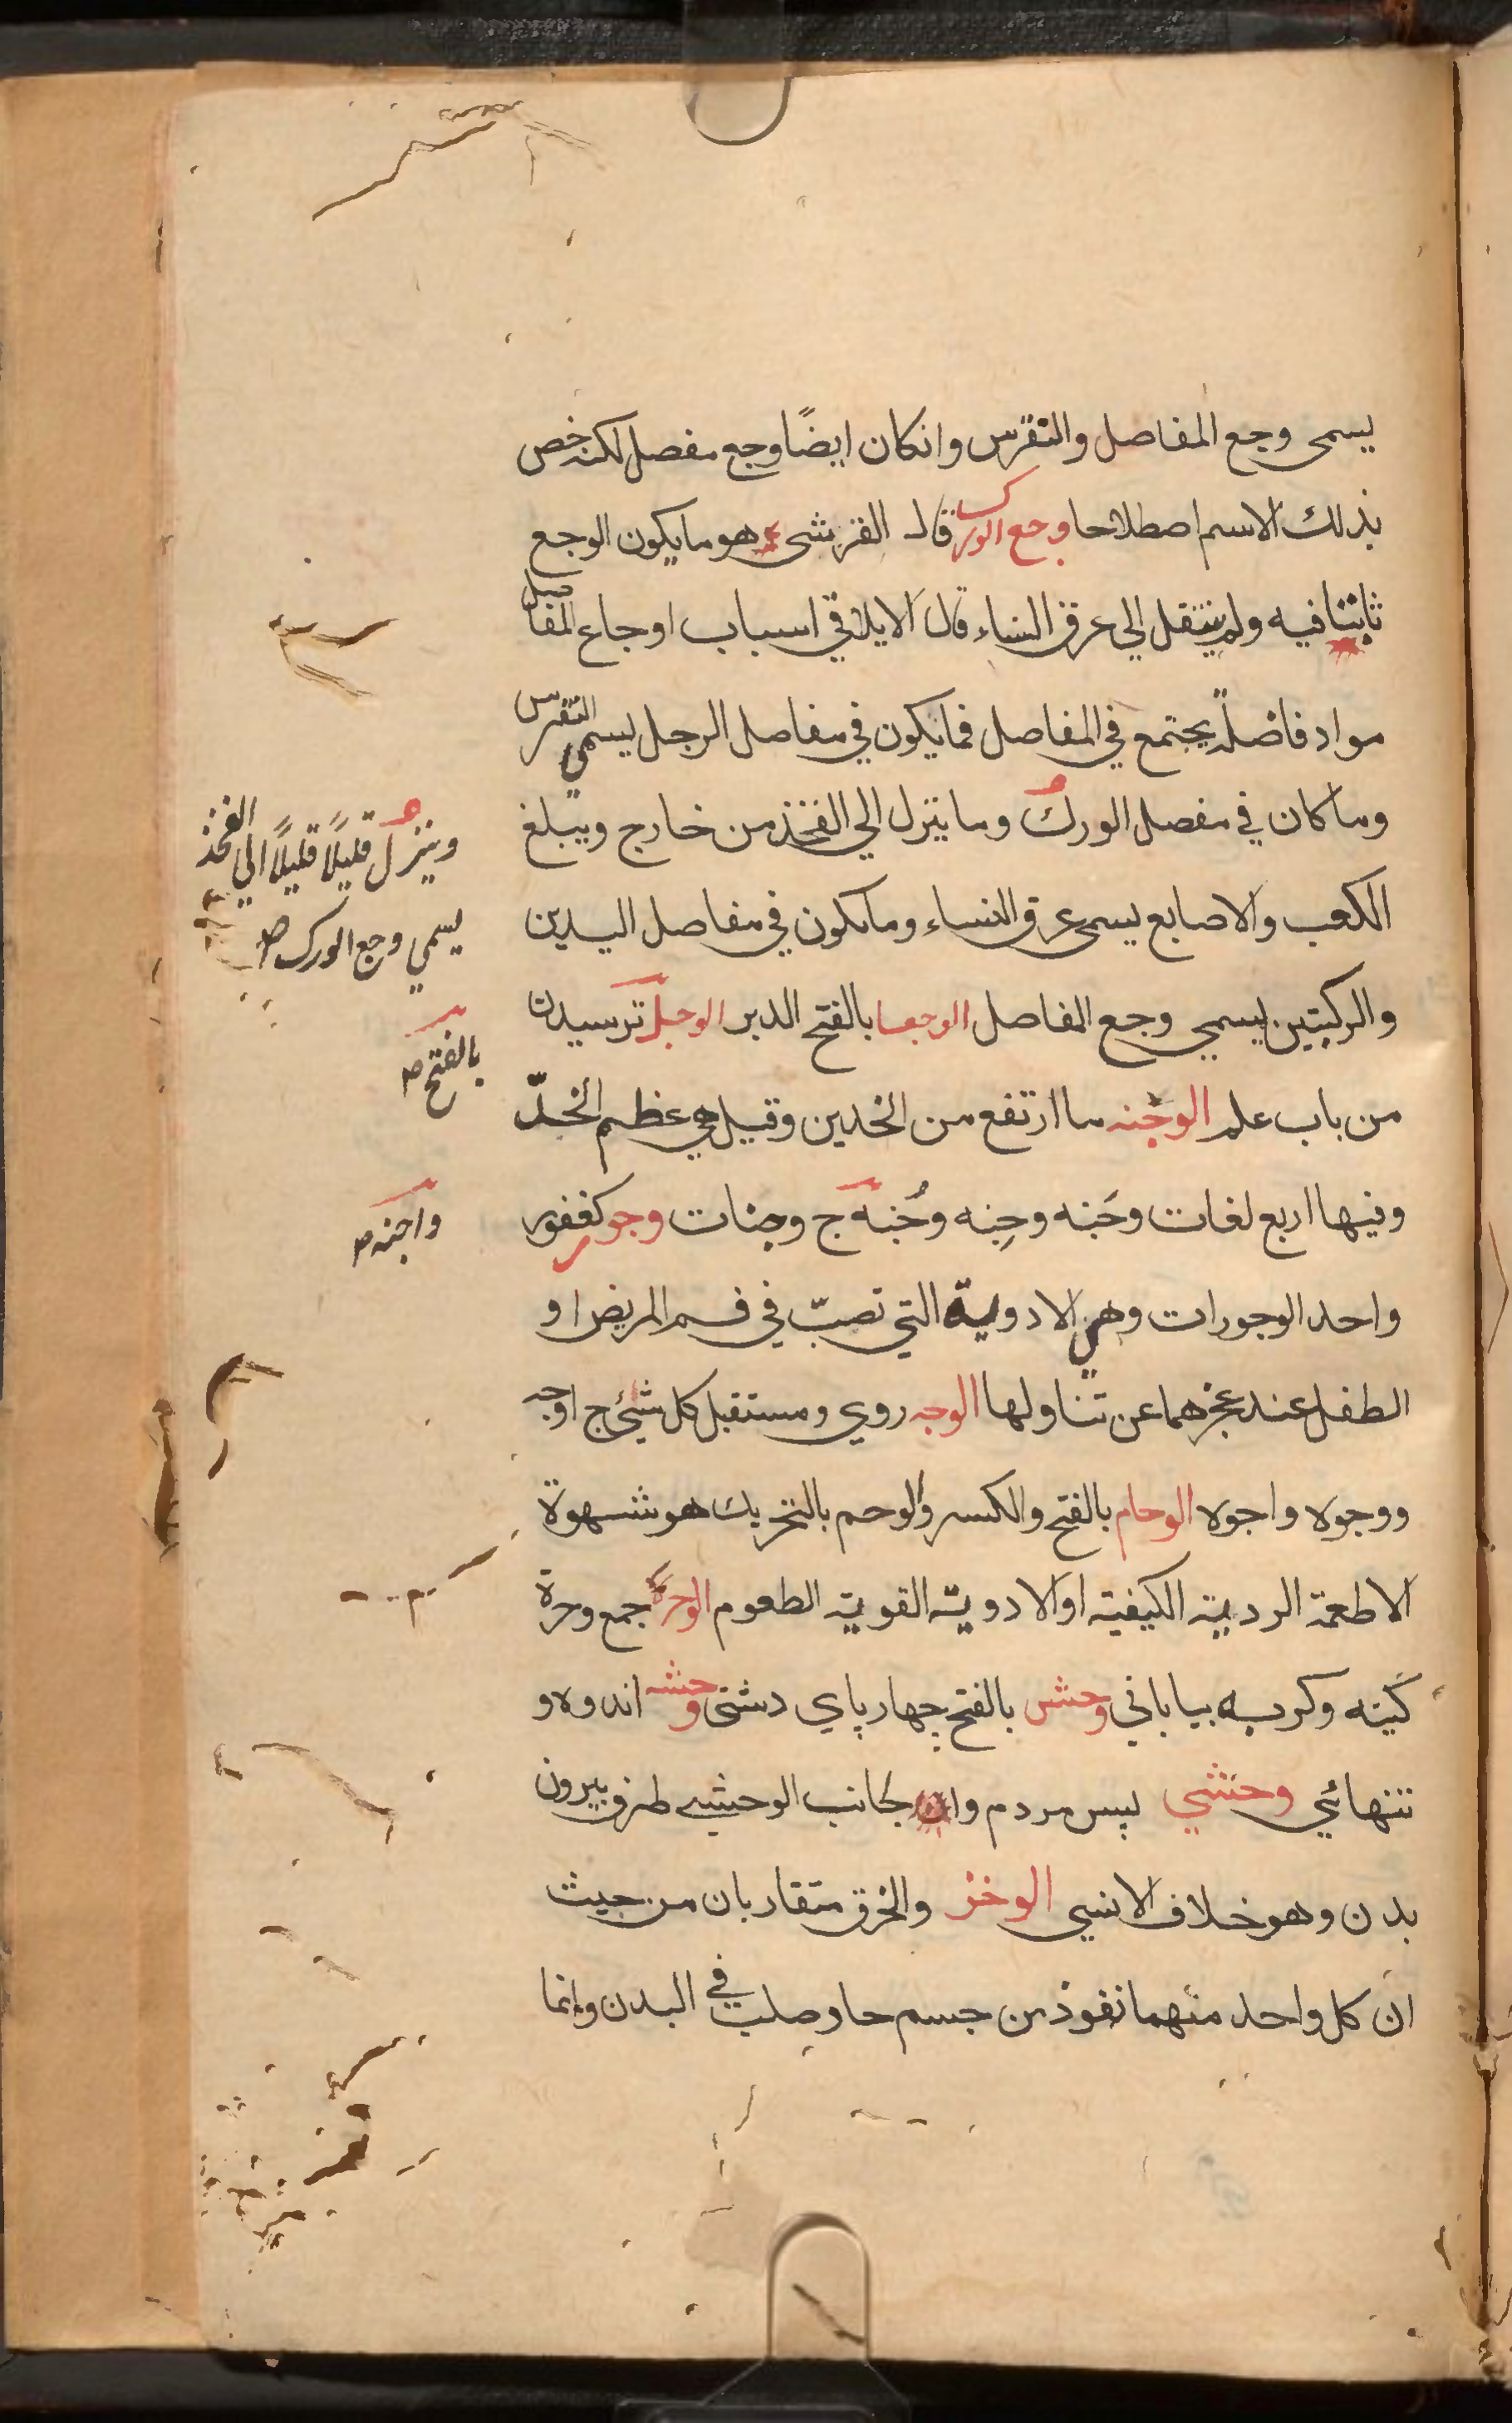 يسمى وجع المفاصل والنقرس وانكان ايضًا وجع مفصل لكنه خص
بذلك الاسم اصطلاحا وجع الورك قال القرشى هو ما يكون الوجع
ثابتا فيه ولم ينتقل الي عرق النساء قال الايلاقي اسباب اوجاع المفاصل
مواد فاضلة يجتمع في المفاصل فما يكون في مفاصل الرجل يسمي النقرس
وما كان في مفصل الورك وما ينزل الي الفخذ من خارج ويبلغ
وينزل قليلًا قليلًا الي الفخذ
يسمي وجع الورك صح
الكعب والاصابع يسمى عرق النساء وما يكون في مفاصل اليدين
والركبتين يسمي وجع المفاصل الوجعا بالفتح الدبر الوجل ترسيدن
بالفتح صح
من باب علم الوجنه ما ارتفع من الخدين وقيل هي عظم الخدّ
وفيها اربع لغات وجَنه وجِنه وجُنه ج وجنات وجور كغفور
واجنه صح
واحد الوجورات وهي الادوية التي تصبّ في فم المريض او
الطفل عند عجزهما عن تناولها الوجه روي ومستقبل كل شئ ج اوجه
ووجوه واجوه الوحام بالفتح والكسر والوحم بالتحريك هو شهوة
الاطعمة الردية الكيفية او الادوية القوية الطعوم الوحرة جمع وحرة
كينه وكربه بياباني وحش بالفتح چهار پاي دشتى وحشه اندوه و
تنهائي وحشي پس مردم وان جانب الوحشي طرف بيرون
بدن وهو خلاف الانسي الوخز والخرق متقاربان من حيث
ان كل واحد منهما نفوذ من جسم حاد صلب في البدن وانما